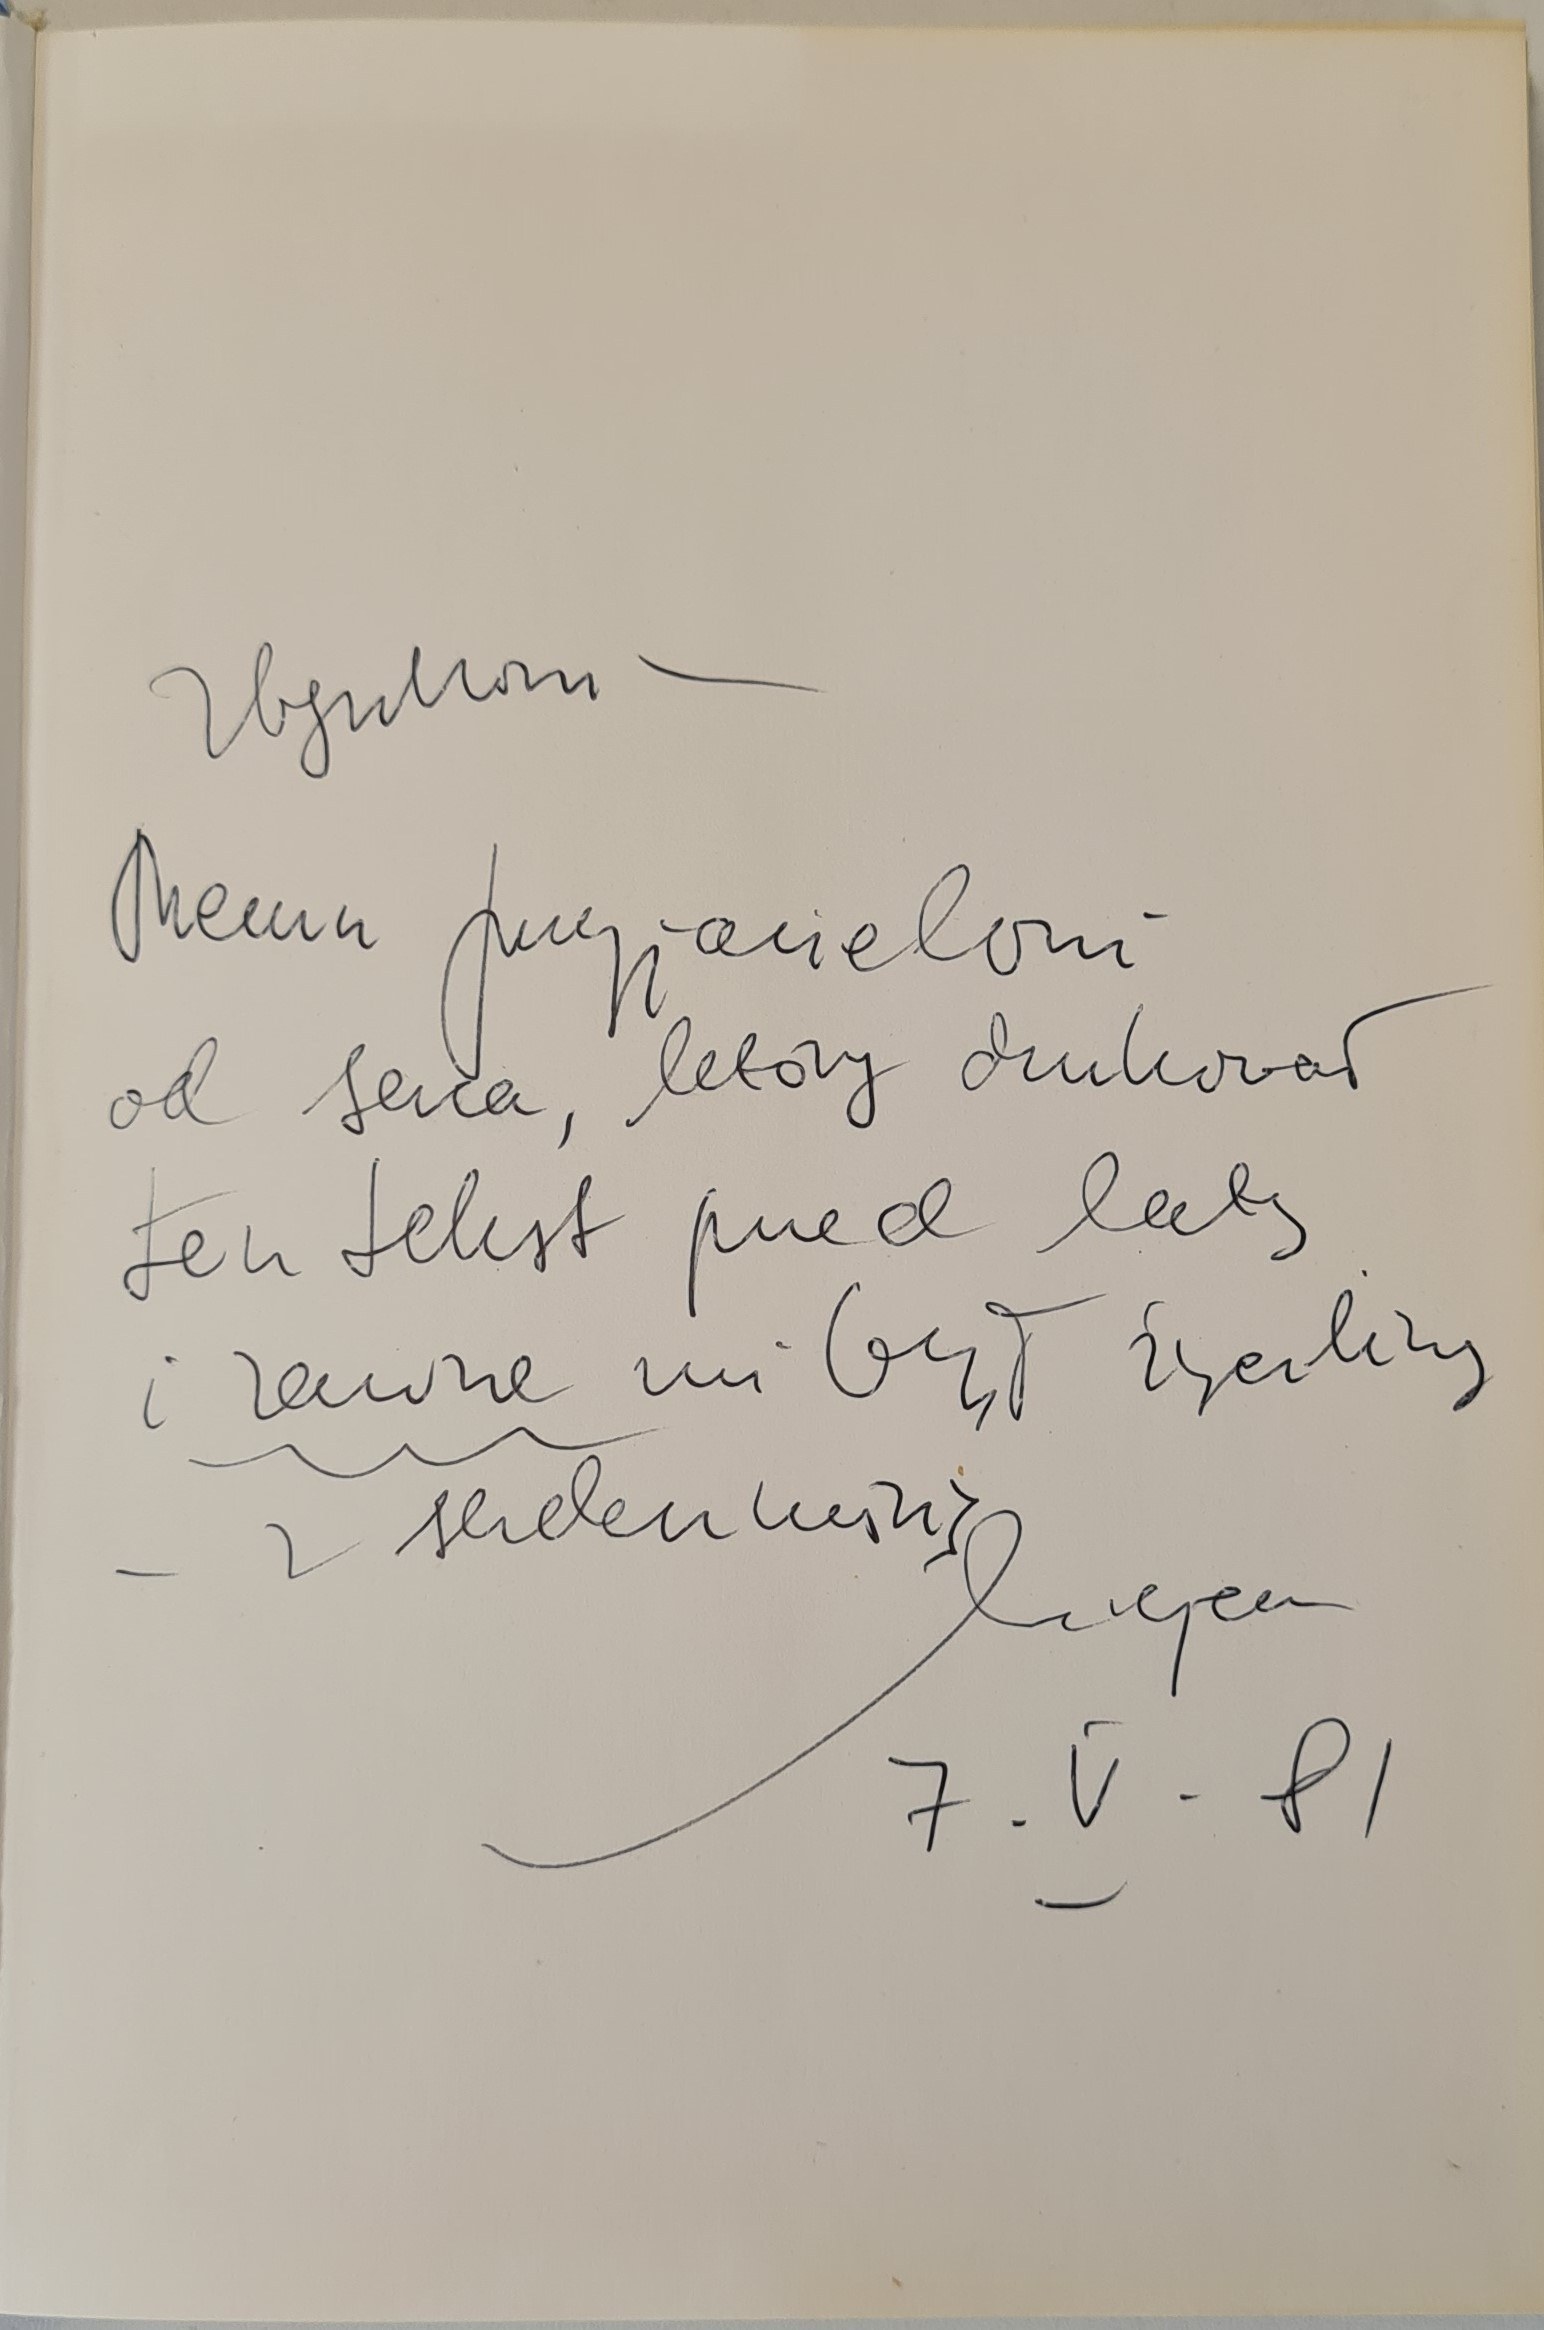 Zbyszkowi —
Memu przyjacielowi
od serca, który drukował
ten tekst przed laty
i zawsze mi był życzliwy
– z serdecznością
7.V.81